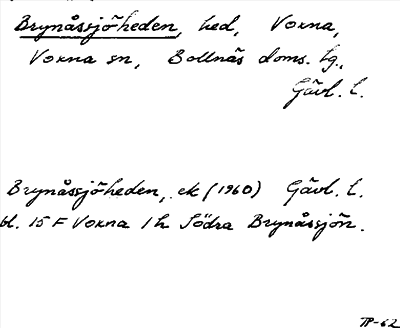 Brynåssjöheden, hed, Voxna,
Voxna sn, Bollnäs doms. tg.,
Gävl. l.
Brynåssjöheden, ek (1960) Gävl. l.
bl. 15 F Voxna 1 h Södra Brynåssjön.
TP-62